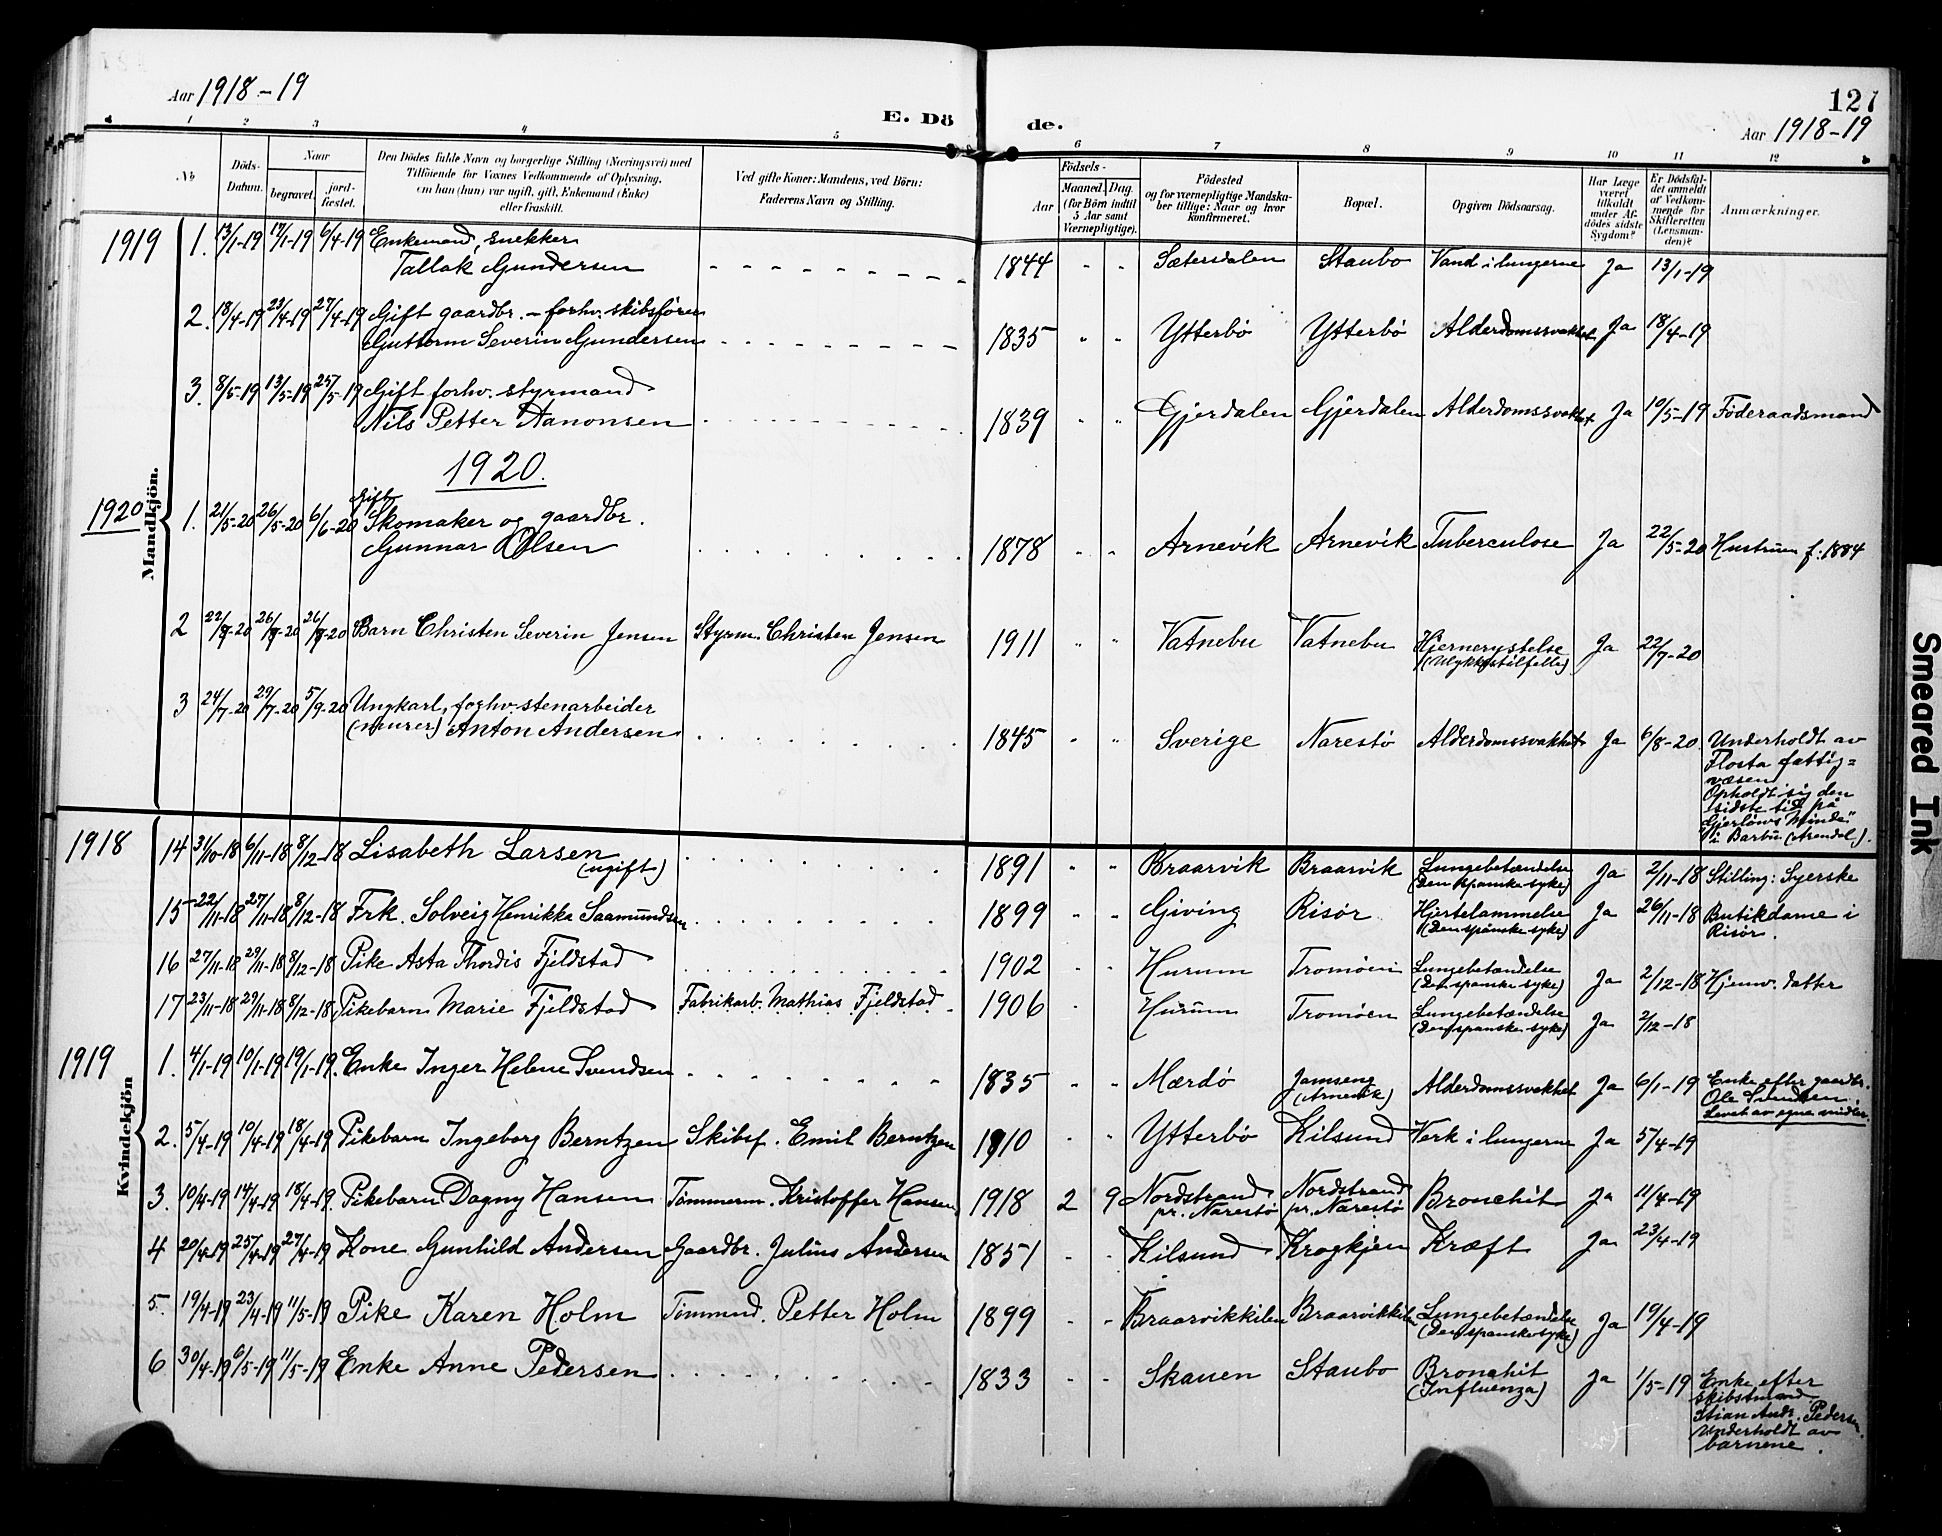 Aar 1918-19
E. Dö de.
127
Aar 1918-19
1 2 3 4 5 6 7 8 9 10 11 12
No
Döds-Datum.
Naar
begravet.
jord-fæstet.
Den Dödes fulde Navn og borgerlige Stilling (Næringsvei) med
Tilföiende for Voxnes Vedkommende af Oplysning,
om han (hun) var ugift, gift, Enkemand (Enke)
eller fraskilt.
Ved gifte Koner: Mandens, ved Börn:
Faderens Navn og Stilling.
Födsels-
Aar
Maaned. Dag.
(for Börn indtil
5 Aar samt
Værnepligtige).
Födested
og for værnepligtige Mandska-
ber tillige: Naar og hvor
konfirmeret.
Bopæl.
Opgiven Dödsaarsag.
Har Læge
været
tilkaldt
under Af-
dödes sidste
Sygdom?
Er Dödsfal-
det anmeldt
af Vedkom-
mende for
Skifteretten
(Lensman-
den)?
Anmærkninger.
Mandkjön.
1919 1. 13/1-19 17/1-19 6/4-19 Enkemand, snekker
Tallak Gundersen 1844 Sætersdalen Staubo Vand i lungerne Ja 13/1-19
2. 18/4-19 23/4-19 27/4-19 Gift gaardbr. - forhv. skibsfører
Guttorm Severin Gundersen 1835 Ytterbö Ytterbö Alderdomssvakhet Ja 18/4-19
3. 8/5-19 13/5-19 25/5-19 Gift forhv. styrmand
Nils Petter Aanonsen 1839 Gjerdalen Gjerdalen Alderdomssvakhet Ja 10/5-19 Föderaadsmand
1920.
1920 1. 21/5-20 26/5-20 6/6-20 Gift
Skomaker og gaardbr.
Gunnar Olsen 1878 Arnevik Arnevik Tuberculose Ja 22/5-20 Hustruen f. 1884
2 22/7-20 26/7-20 26/7-20 Barn Christen Severin Jensen Styrm. Christen Jensen 1911 Vatnebu Vatnebu Hjernerystelse Ja 22/7-20
(Ulykkestilfelle)
3 24/7-20 29/7-20 5/9-20 Ungkarl, forhv. stenarbeider
(murer) Anton Andersen 1845 Sverige Narestö Alderdomssvakhet Ja 6/8-20 Underholdt av
Flosta fattig=
væsen
Opholdt sig den
sidste tid på
"Gjerløws Minde"
i Barbu (Arendal).
Kvindekjön
1918 14 31/10-18 6/11-18 8/12-18 Lisabeth Larsen
(ugift) 1891 Braarvik Braarvik Lungebetændelse Ja 2/11-18 Stilling: Syerske
(Den spanske syke)
15 22/11-18 27/11-18 8/12-18 Frk. Solveig Henrikke Saamundsen 1899 Giving Risör Hjertelammelse Ja 26/11-18 Butikdame i
(Den spanske syke) Risör.
16 27/11-18 29/11-18 8/12-18 Pike Asta Thordis Fjeldstad 1902 Hurum Tromöen Lungebetændelse Ja 2/12-18 Hjemv. datter
(Den spanske syke)
17 23/11-18 29/11-18 8/12-18 Pikebarn Marie Fjeldstad Fabrikarb. Mathias Fjeldstad 1906 Hurum Tromöen Lungebetændelse Ja 2/12-18
(Den spanske syke)
1919 1. 4/1-19 10/1-19 19/1-19 Enke Inger Helene Svendsen 1835 Mærdö Jamseng
(Arnevik) Alderdomssvakhet Ja 6/1-19 Enke efter gaardbr.
Ole Svendsen.
Levet av egne midler.
2. 5/4-19 10/4-19 18/4-19 Pikebarn Ingeborg Berntzen Skibsf. Emil Berntzen 1910 Ytterbö Kilsund Verk i lungerne Ja 5/4-19
3. 10/4-19 14/4-19 18/4-19 Pikebarn Dagny Hansen Tömmerm. Kristoffer Hansen 1918 2 9 Nordstrand
pr. Narestö Nordstrand
pr. Narestö Bronchit Ja 11/4-19
4 20/4-19 25/4-19 27/4-19 Kone Gunhild Andersen Gaardbr. Julius Andersen 1851 Kilsund Krogkjen Kræft Ja 23/4-19
5. 19/4-19 23/4-19 11/5-19 Pike Karen Holm Tömmmd. Petter Holm 1899 Braarvikkilen Braarvikkilen Lungebetændelse Ja 19/4-19
(Den spanske syke)
6 30/4-19 6/5-19 11/5-19 Enke Anne Pedersen 1833 Skauen Staubo Bronchit Ja 1/5-19 Enke efter
(Influenza) skibstmand
Stian Andr. Pedersen.
Underholdt av
barnene.
Smeared Ink